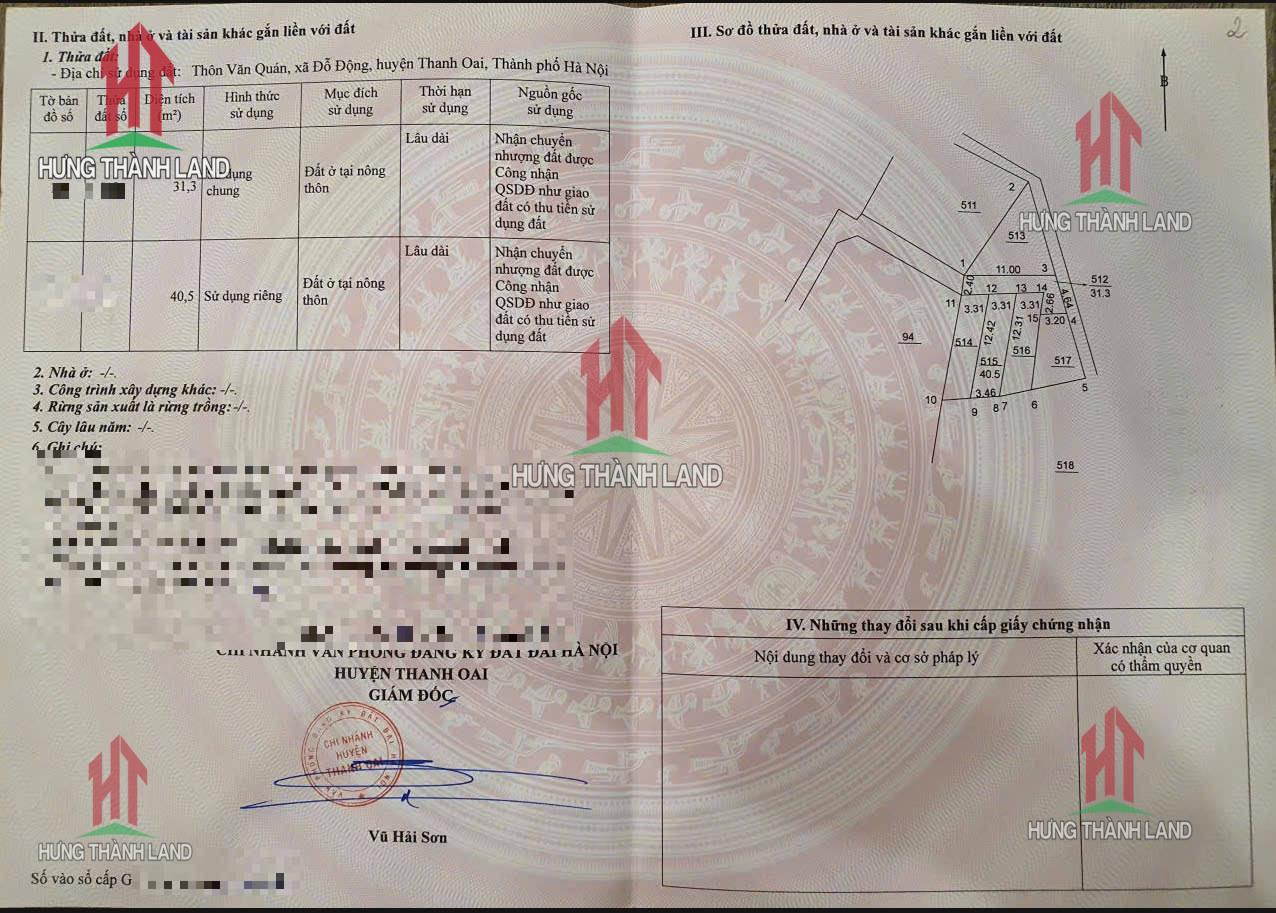 II. Thửa đất, nhà ở và tài sản khác gắn liền với đất
1. Thửa đất:
- Địa chỉ sử dụng đất: Thôn Văn Quán, xã Đỗ Động, huyện Thanh Oai, Thành phố Hà Nội
Tờ bản đồ số
Thửa đất số
Diện tích (m²)
Hình thức sử dụng
Mục đích sử dụng
Thời hạn sử dụng
Nguồn gốc sử dụng
31,3
dụng
chung
Đất ở tại nông
thôn
Lâu dài
Nhận chuyển
nhượng đất được
Công nhận
QSDĐ như giao
đất có thu tiền sử
dụng đất
40,5
Sử dụng riêng
Đất ở tại nông
thôn
Lâu dài
Nhận chuyển
nhượng đất được
Công nhận
QSDĐ như giao
đất có thu tiền sử
dụng đất
2. Nhà ở: -/-.
3. Công trình xây dựng khác: -/-.
4. Rừng sản xuất là rừng trồng: -/-.
5. Cây lâu năm: -/-.
6. Ghi chú:
CHI NHÁNH VĂN PHÒNG ĐĂNG KÝ ĐẤT ĐAI HÀ NỘI
HUYỆN THANH OAI
GIÁM ĐỐC
CHI NHÁNH
HUYỆN
THANH OAI
VĂN PHÒNG ĐĂNG KÝ ĐẤT ĐAI HÀ NỘI
Vũ Hải Sơn
Số vào sổ cấp G
III. Sơ đồ thửa đất, nhà ở và tài sản khác gắn liền với đất
2
B
2
511
513
1
11.00
3
512
31.3
2.40
12
13
14
4.64
11
3.31
3.31
3.31
2.66
15
3.20
4
94
514
12.42
12.31
516
517
515
40.5
5
10
3.46
9
8
7
6
518
IV. Những thay đổi sau khi cấp giấy chứng nhận
Nội dung thay đổi và cơ sở pháp lý
Xác nhận của cơ quan
có thẩm quyền
HT
HƯNG THÀNH LAND
HT
HƯNG THÀNH LAND
HT
HƯNG THÀNH LAND
HT
HƯNG THÀNH LAND
HT
HƯNG THÀNH LAND